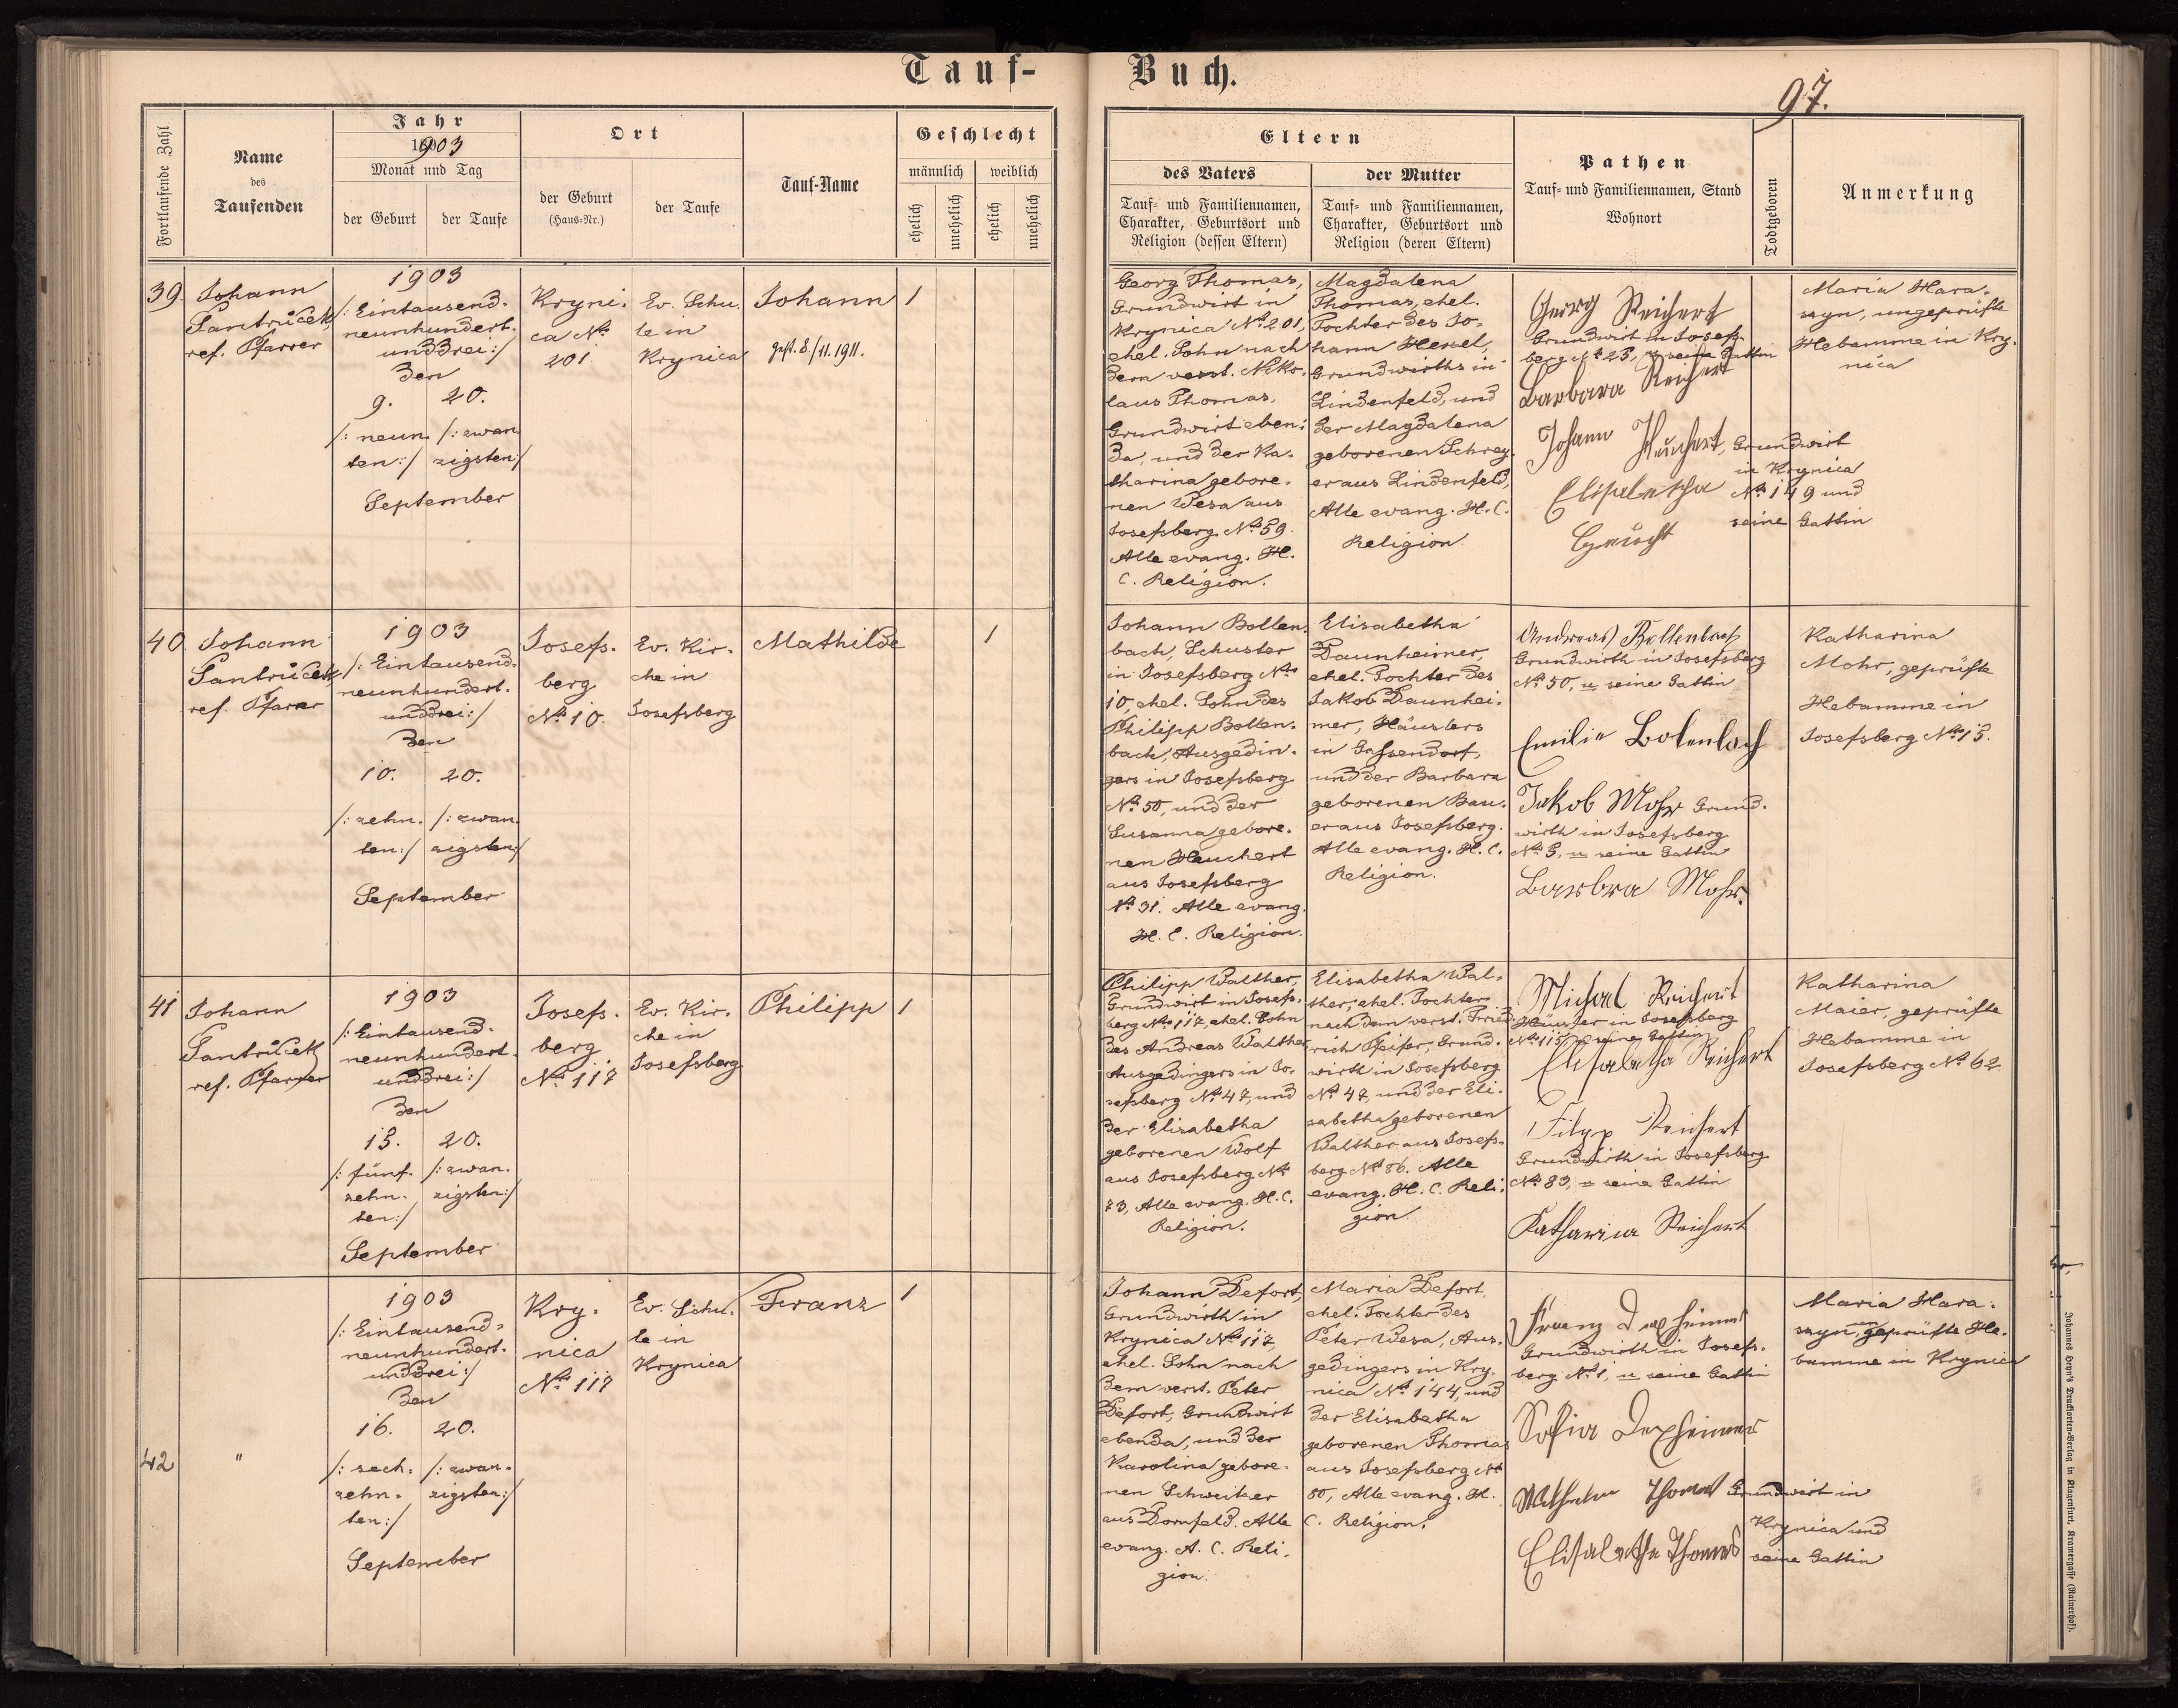 Tauf-
Buch.
97.
Fortlaufende Zahl
Name
des
Taufenden
Jahr
1903
Monat und Tag
der Geburt
der Taufe
Ort
der Geburt
(Haus-Nr.)
der Taufe
Tauf-Name
Geschlecht
männlich
weiblich
ehelich
unehelich
ehelich
unehelich
Eltern
des Vaters
Tauf- und Familiennamen,
Charakter, Geburtsort und
Religion (dessen Eltern)
der Mutter
Tauf- und Familiennamen,
Charakter, Geburtsort und
Religion (deren Eltern)
Pathen
Tauf- und Familiennamen, Stand
Wohnort
Todtgeboren
Anmerkung
39.
Johann
Pantrůček,
ref. Pfarrer
1903
/: Eintausend-
neunhundert-
unddrei :/
den
9. 20.
/: neun- /: zwan-
ten :/ zigsten :/
September
Kryni-
ca No.
201.
Ev. Schu-
le in
Krynica
Johann
gest. 8./11.1911.
1
Georg Thomas,
Grundwirt in
Krynica No. 201,
ehel. Sohn nach
dem verst. Niko-
laus Thomas,
Grundwirt eben-
da, und der Ka-
tharina gebore-
nen Wesa aus
Josefsberg No. 59.
Alle evang. H.
C. Religion.
Magdalena
Thomas, ehel.
Tochter des Jo-
hann Hessel,
Grundwirths in
Lindenfeld, und
der Magdalena
geborenen Schrey-
er aus Lindenfeld,
Alle evang. H. C.
Religion.
Georg Reichert
Grundwirt in Josefs-
berg No. 25, u. seine Gattin
Barbara Reichert
Johann Heuchert, Grundwirt
in Krynica
Elisabetha No. 149 und
seine Gattin
Maria Hara-
szyn, ungeprüfte
Hebamme in Kry-
nica
40.
Johann
Pantrůček,
ref. Pfarrer
1903
/: Eintausend-
neunhundert-
unddrei :/
den
10. 20.
/: zehn- /: zwan-
ten :/ zigsten :/
September
Josefs-
berg
No. 10.
Ev. Kir-
che in
Josefsberg
Mathilde
1
Johann Bollen-
bach, Schuster
in Josefsberg No.
10, ehel. Sohn des
Philipp Bollen-
bach, Ausgedin-
gers in Josefsberg
No. 50, und der
Susanna gebore-
nen Heuchert
aus Josefsberg
No. 31. Alle evang.
H. C. Religion.
Elisabetha
Daunheimer,
ehel. Tochter des
Jakob Daunhei-
mer, Häuslers
in Gassendorf,
und der Barbara
geborenen Bau-
er aus Josefsberg.
Alle evang. H. C.
Religion.
Andreas Bollenbach
Grundwirth in Josefsberg
No. 50, u seine Gattin
Emilie Bolenbach
Jakob Mohr Grund-
wirth in Josefsberg
No. 5, u seine Gattin
Barbra Mohr.
Katharina
Mohr, geprüfte
Hebamme in
Josefsberg No. 13.
41
Johann
Pantrůček
ref. Pfarrer
1903
/: Eintausend-
neunhundert-
unddrei :/
den
15. 20.
/: fünf- /: zwan-
zehn- zigsten :/
ten :/
September
Josefs-
berg
No. 117
Ev. Kir-
che in
Josefsberg
Philipp
1
Philipp Walther,
Grundwirt in Josefs-
berg No. 117, ehel. Sohn
des Andreas Walther,
Ausgedingers in Jo-
sefsberg No. 47, und
der Elisabetha
geborenen Wolf
aus Josefsberg No.
73, Alle evang. H. C.
Religion.
Elisabetha Wal-
ther, ehel. Tochter
nach dem verst. Fried-
rich Pfeifer, Grund-
wirth in Josefsberg
No. 47, und der Eli-
sabetha geborenen
Walther aus Josefs-
berg No. 86. Alle
evang. H. C. Reli-
gion.
Michael Reichert
Häusler in Josefsberg
No. 115 u seine Gattin
Elisabetha Reichert
Filipp Reichert
Grundwirth in Josefsberg
No. 83, u seine Gattin
Katharina Reichert
Katharina
Maier, geprüfte
Hebamme in
Josefsberg No. 62.
42
"
1903
/: Eintausend-
neunhundert-
unddrei :/
den
16. 20.
/: sech- /: zwan-
zehn- zigsten :/
ten :/
September
Kry-
nica
No. 117
Ev. Schu-
le in
Krynica
Franz
1
Johann Defort,
Grundwirth in
Krynica No. 117,
ehel. Sohn nach
dem verst. Peter
Defort, Grundwirt
ebenda, und der
Karolina gebore-
nen Schweitzer
aus Dornfeld. Alle
evang. A. C. Reli-
gion.
Maria Defort,
ehel. Tochter des
Peter Wesa, Aus-
gedingers in Kry-
nica No. 144, und
der Elisabetha
geborenen Thomas
aus Josefsberg No.
80, Alle evang. H.
C. Religion.
Franz Dexheimer
Grundwirth in Josefs-
berg No. 1, u seine Gattin
Sofia Dexheimer
Thomas Grundwirt in
Krynica und
Elisabetha Thomas seine Gattin
Maria Hara-
szyn, ungeprüfte He-
bamme in Krynica
Johannes Heyn's Drucksorten-Verlag in Klagenfurt, Kramergasse (Rainerhof).